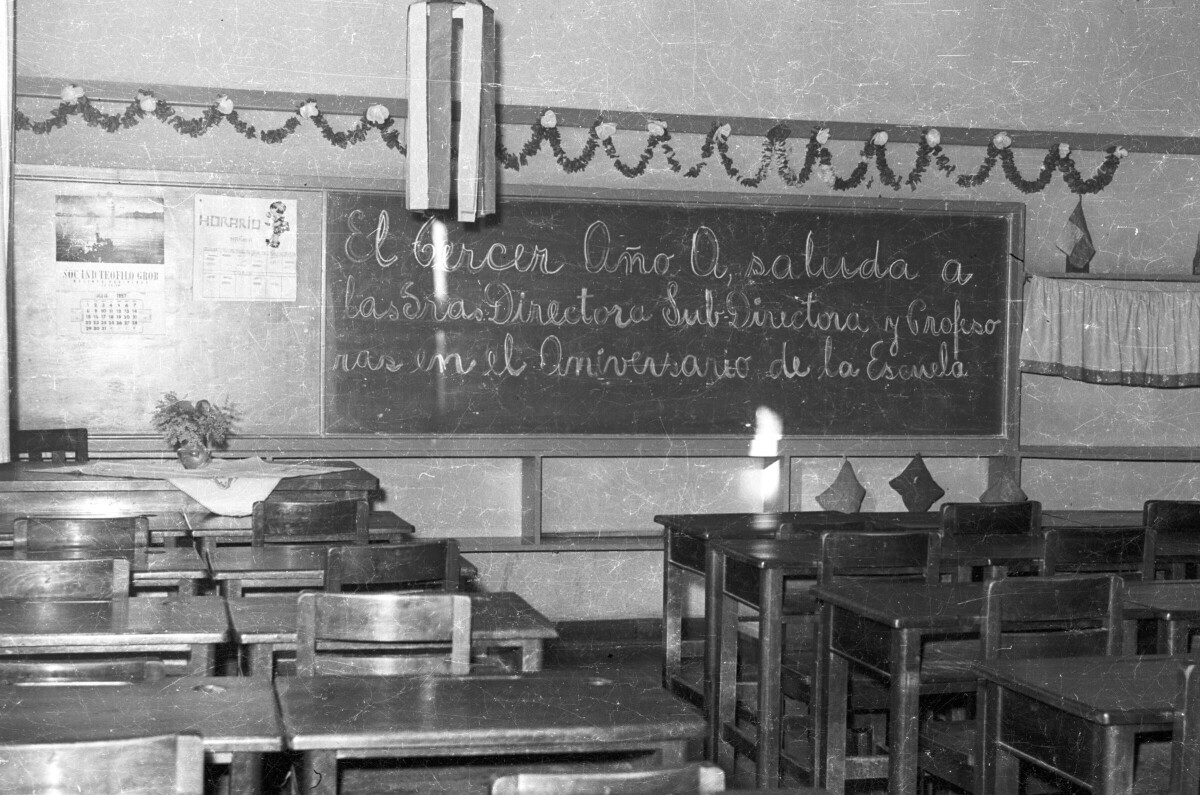 El Tercer Año A, saluda a
las Sras. Directora Sub-Directora y Profeso
ras en el Aniversario de la Escuela
HORARIO
SOC. IND. TEOFILO GROB
1957